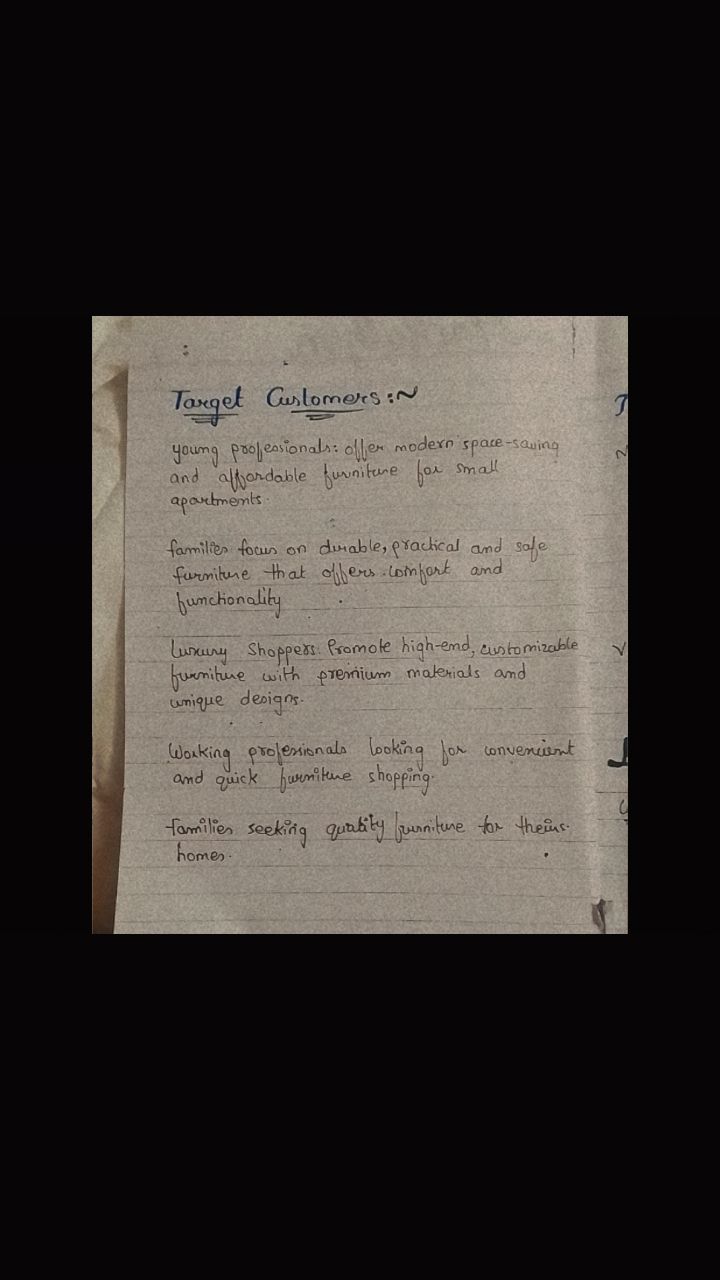 Target Customers:~
young professionals: offer modern space-saving
and affordable furniture for small
apartments.
families focus on durable, practical and safe
furniture that offers comfort and
functionality
Luxury Shoppers: Promote high-end, customizable
furniture with premium materials and
unique designs.
Working professionals looking for convenient
and quick furniture shopping.
families seeking quality furniture for theirs.
homes.